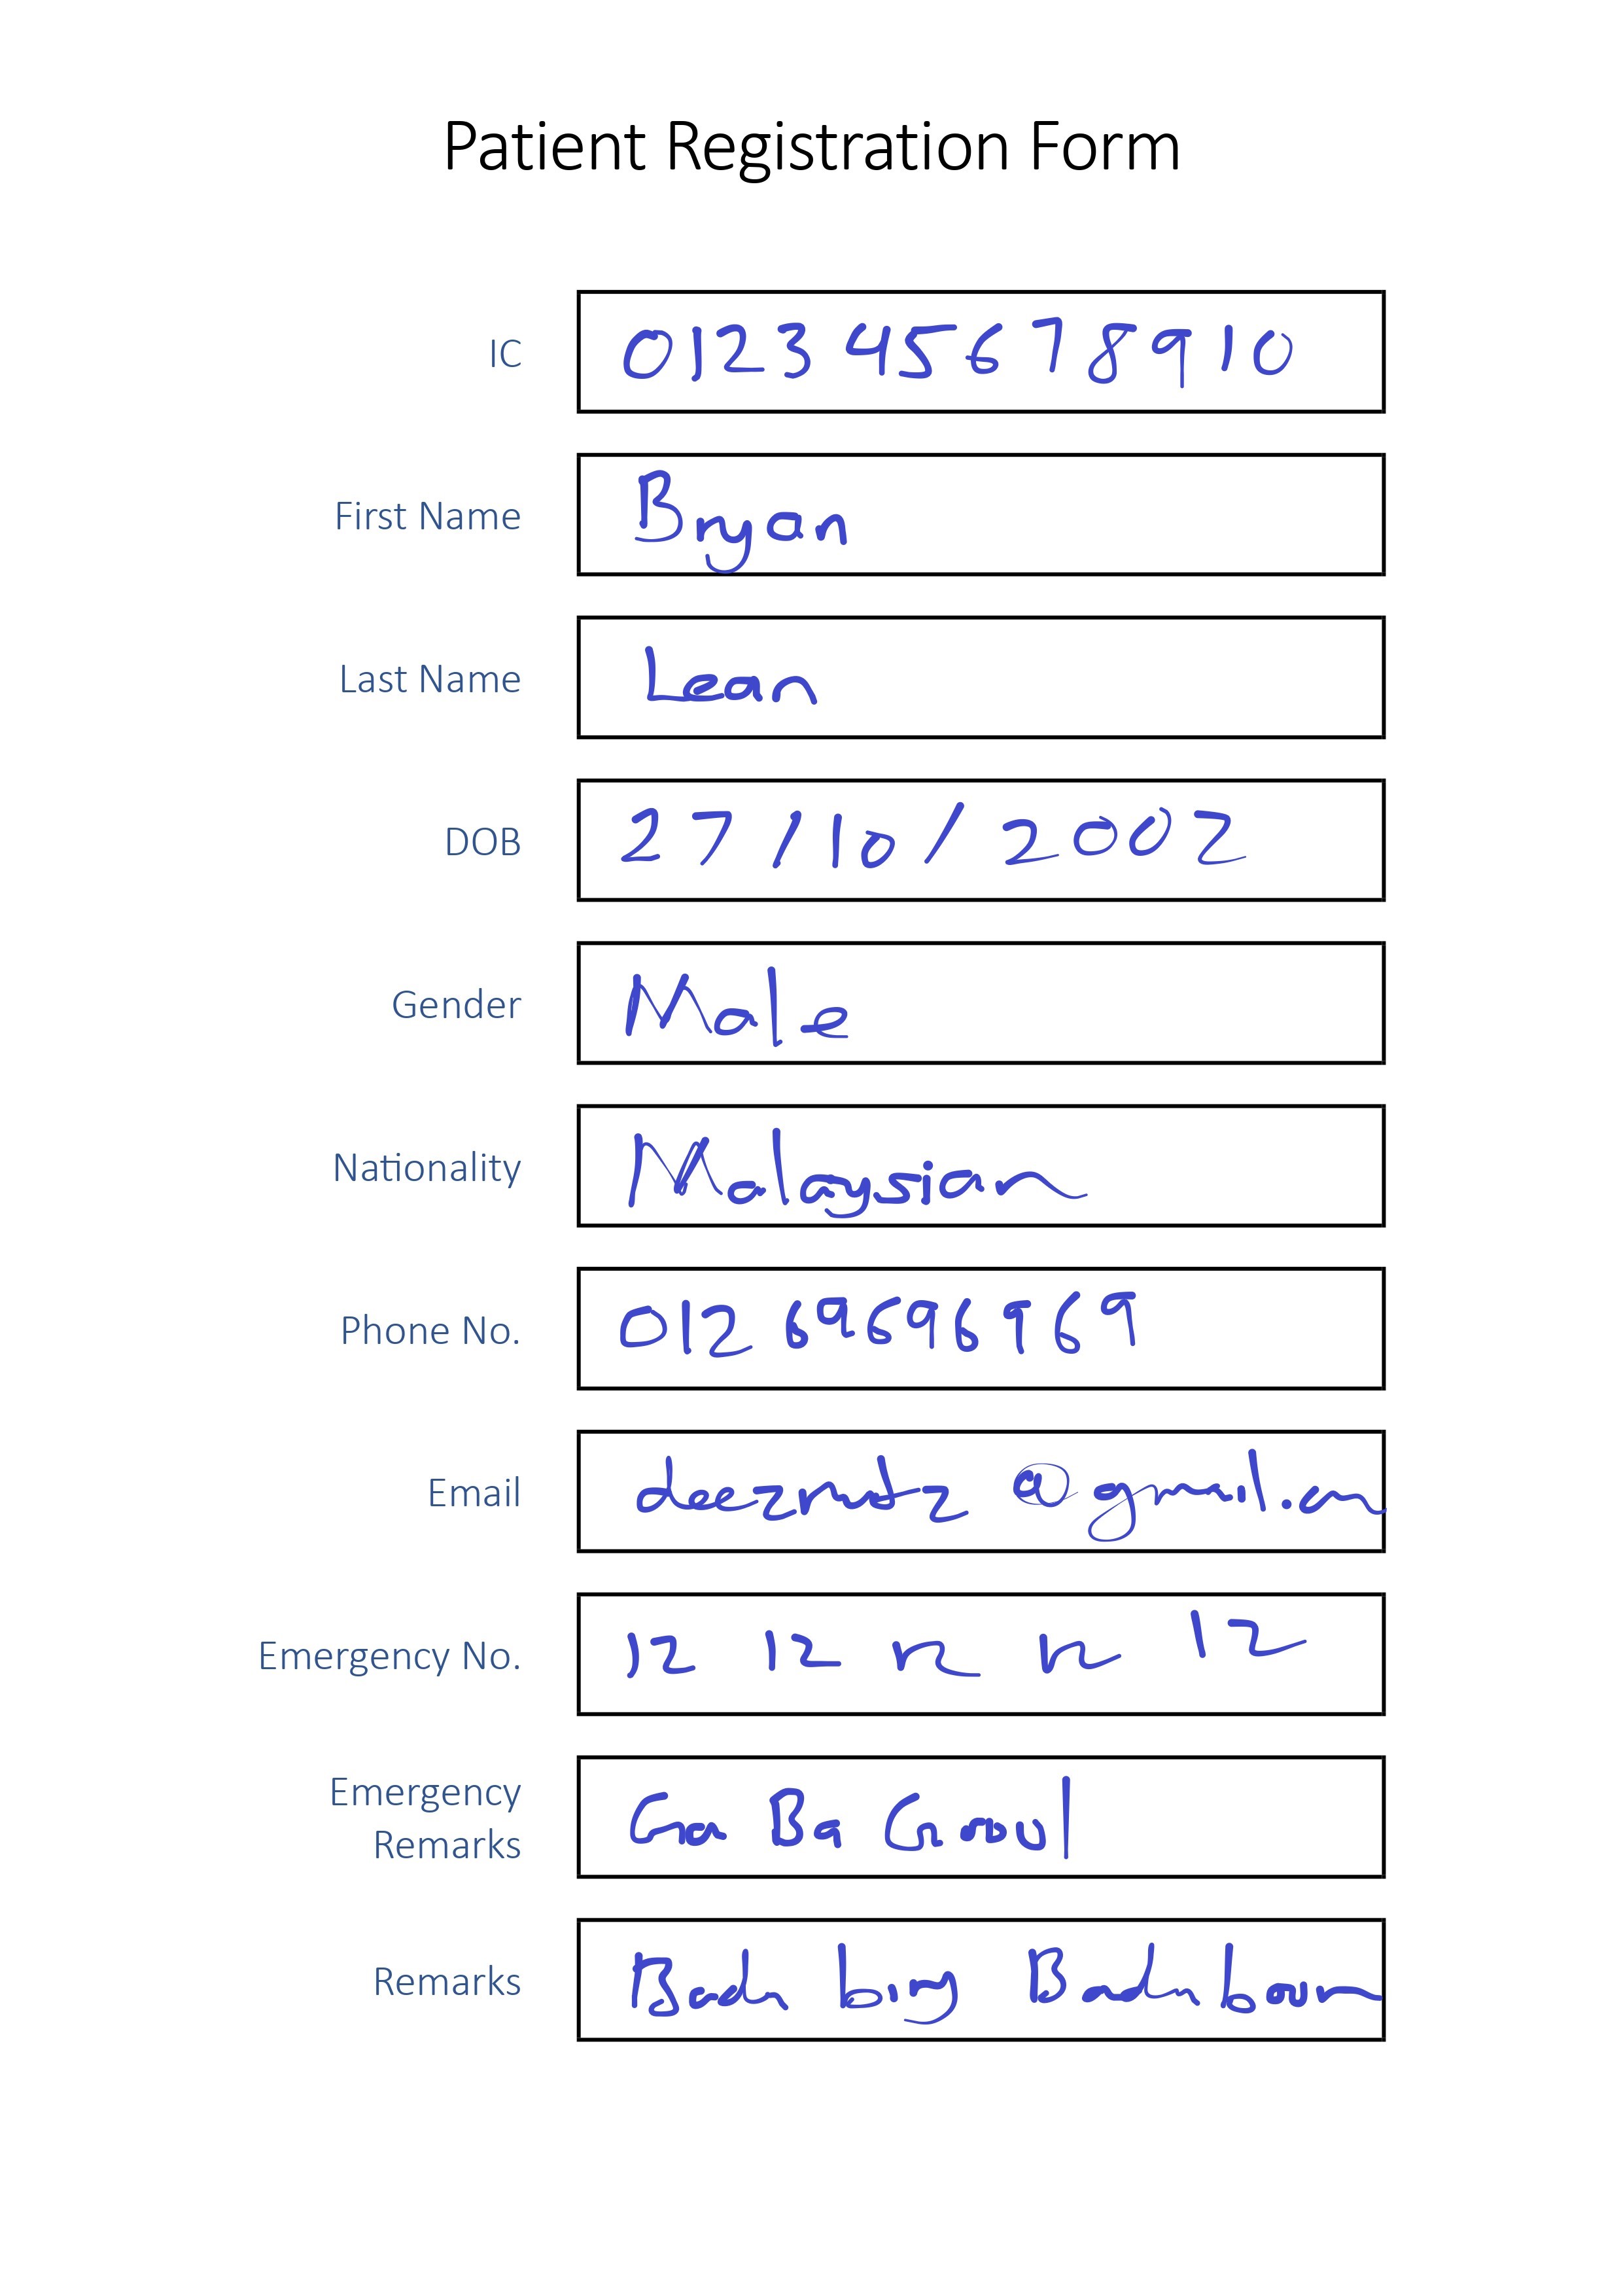 Patient Registration Form
IC 012345678910
First Name Bryan
Last Name Lean
DOB 27/10/2002
Gender Male
Nationality Malaysian
Phone No. 012 69696969
Email @gmail.
Emergency No. 12 12 12 12 12
Emergency
Remarks Ba
Remarks